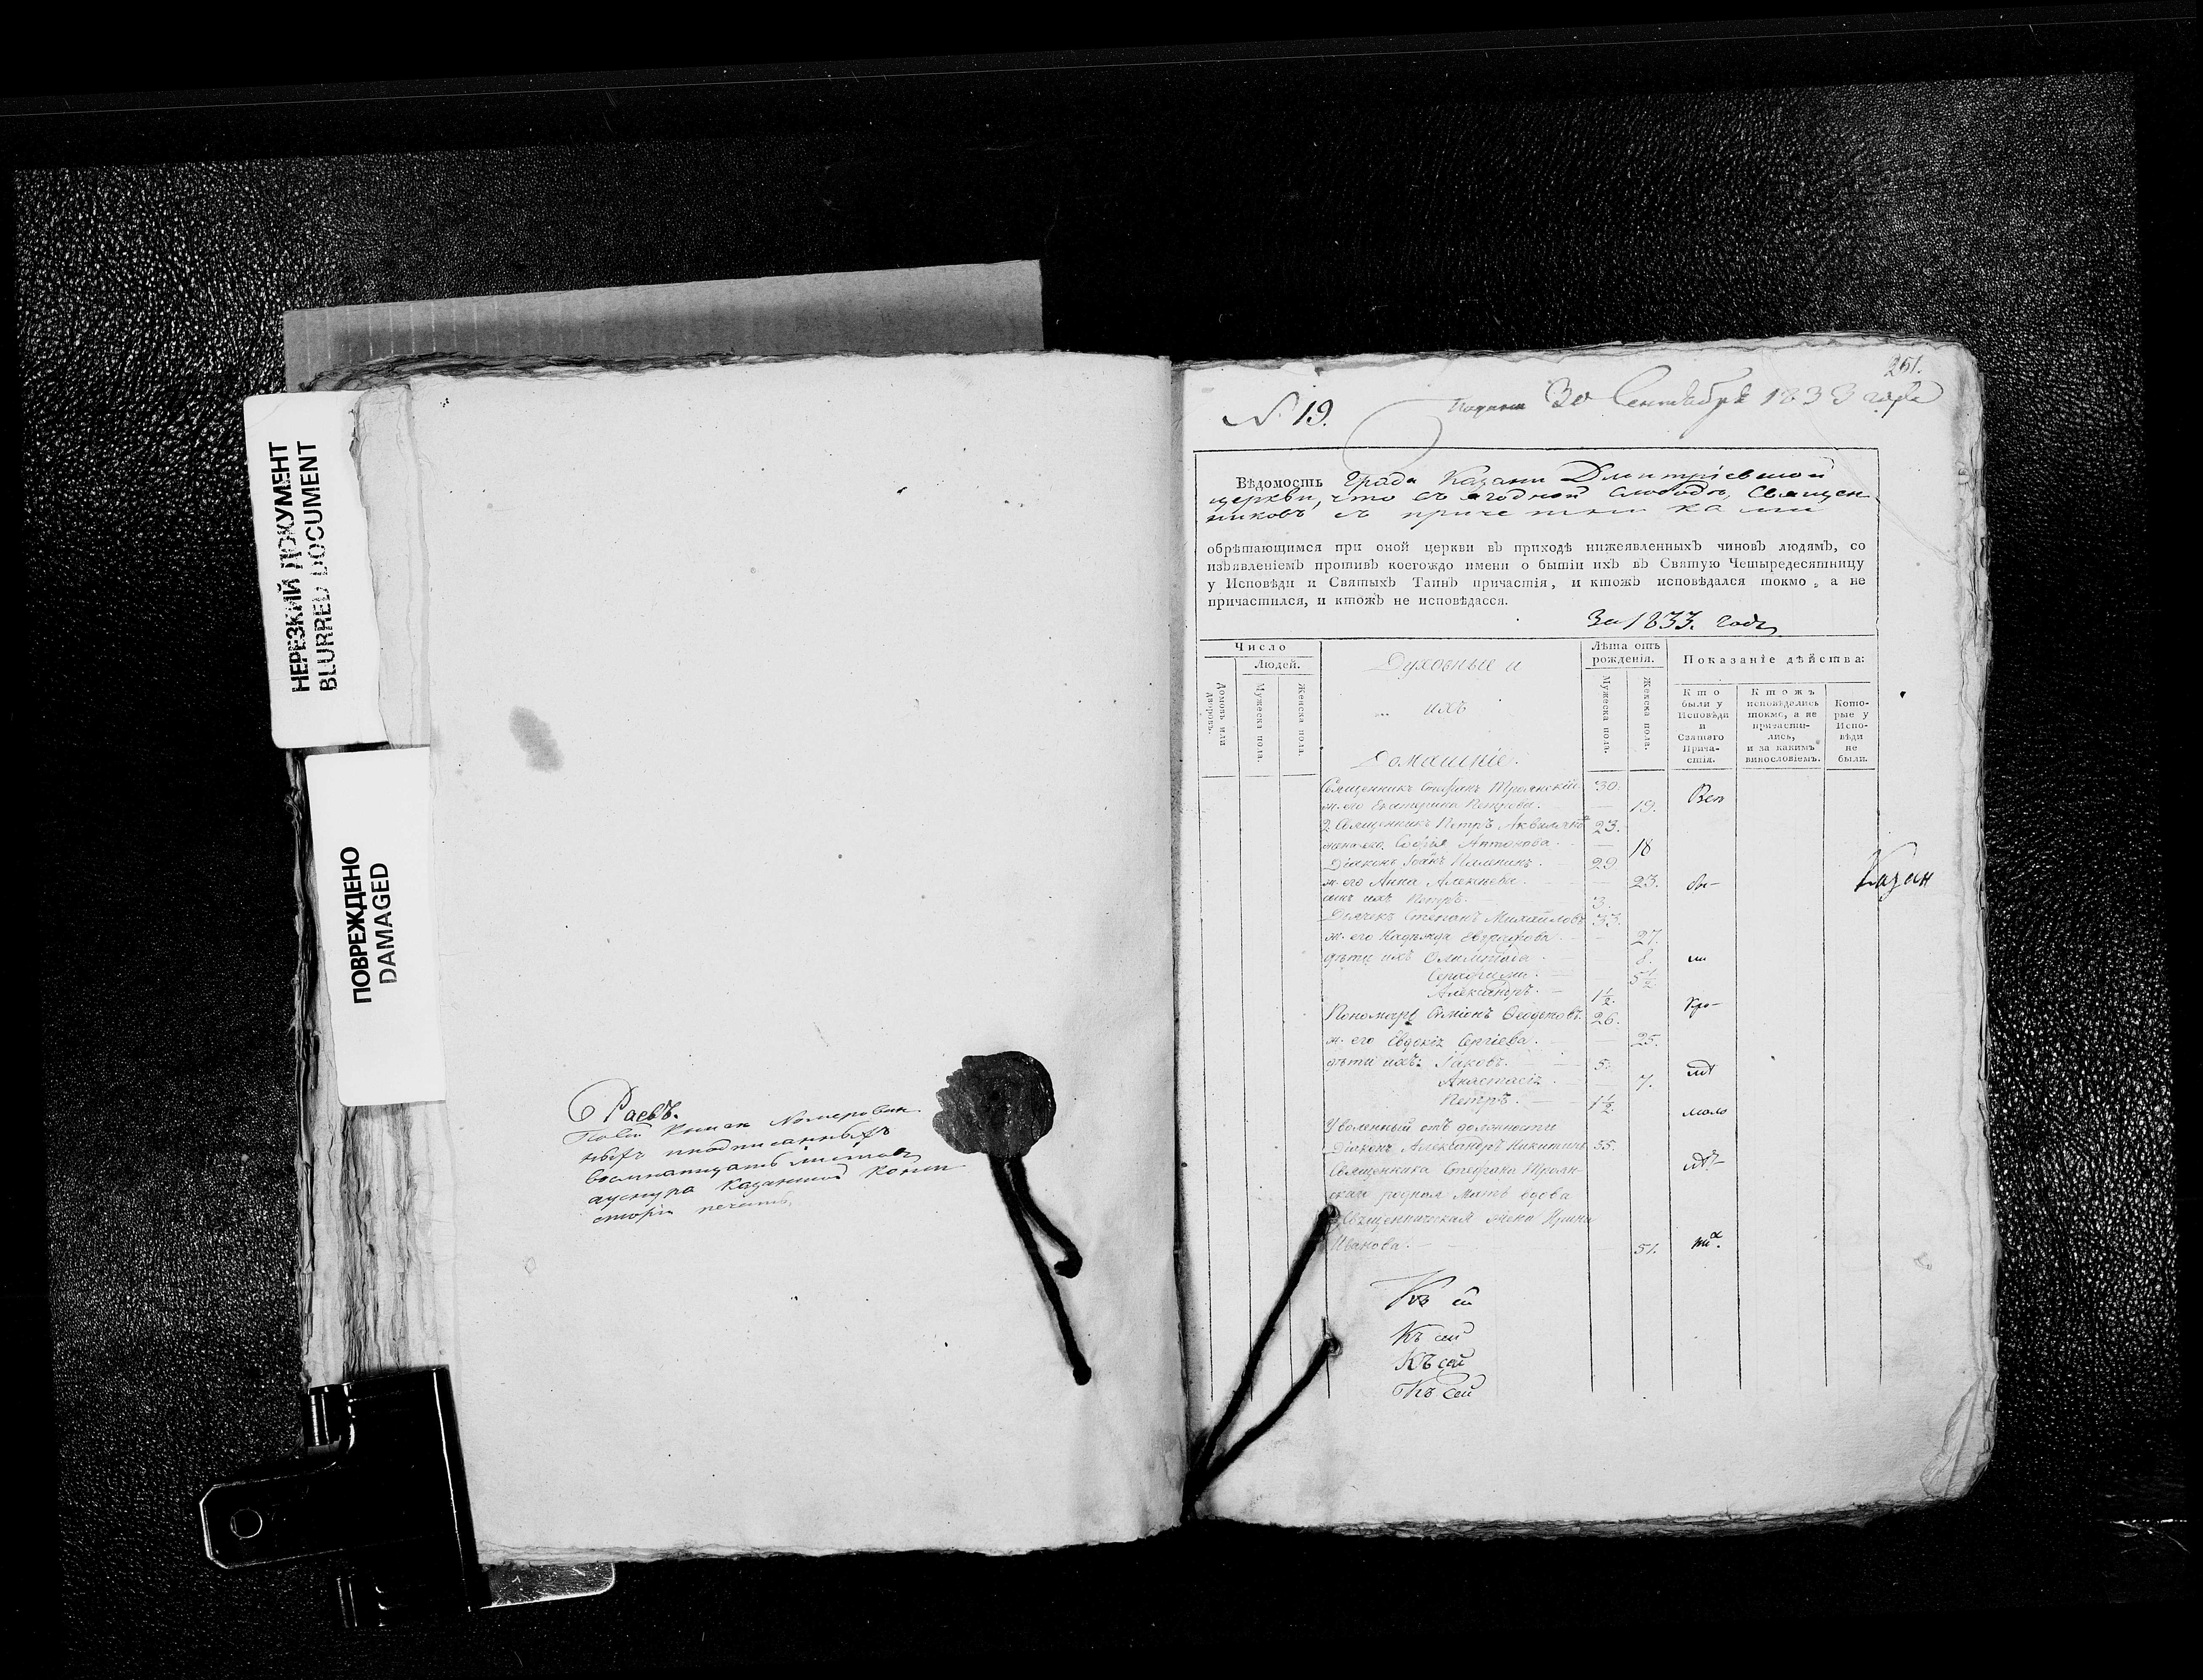 НЕРЕЗКИЙ ДОКУМЕНТ
BLURRED DOCUMENT
ПОВРЕЖДЕНО
DAMAGED
Раевъ.
номерован
ныхъ
листовъ
Казанской
печать.
251.
№ 19.
30 Сентября 1833 года
Вѣдомость Града Казани Дмитріевской
церкви, что въ Ягодной слободѣ, Священ
никовъ съ причетниками
обрѣтающимся при оной церкви въ приходѣ нижеявленныхъ чиновъ людямъ, со
изъявленіемъ противъ коегождо имени о бытіи ихъ въ Святую Четыредесятницу
у Исповѣди и Святыхъ Таинъ причастія, и ктожъ исповѣдался токмо, а не
причастился, и ктожъ не исповѣдасся.
За 1833. годъ
Число
Людей.
Домовъ или дворовъ.
Мужеска пола.
Женска пола.
Духовные и
ихъ
Домашніе.
Лѣта отъ
рожденія.
Мужеска полъ.
Женска пола.
Показаніе дѣйства:
Кто
были у
Исповѣди
и
Святаго
Прича-
стія.
Ктожъ
исповѣдались
токмо, а не
причасти-
лись,
и за какимъ
винословіемъ.
Кото-
рые у
Испо-
вѣди
не
были.
Священникъ Стефанъ Троянскій 30.
ж. его Екатерина Петрова. 19.
2 Священникъ Петръ 23.
жена его Софья Антонова. 18
Діаконъ Іоаннъ 29
ж. его Анна Алексѣева. 23.
сынъ ихъ Петръ. 3.
Дьячекъ Степанъ Михайловъ 33.
ж. его Надежда 27.
дѣти ихъ Олимпіада 8.
Серафима. 5½
Александръ. 1½.
Пономарь Симіонъ Ѳедотовъ. 26.
ж. его Евдокія Сергіева. 25.
дѣти ихъ: Іаковъ. 5.
Анастасія. 7.
Петръ. 1½.
Уволенный отъ должности
Діаконъ Александръ Никитинъ 55.
Священника Стефана Троян-
скаго родная мать вдова
священническая жена Ирина
Иванова. 51.
Всѣ
бы-
ли
кро-
мѣ
мало
лѣт-
Казан
Къ сей
Къ сей
Къ сей
Къ сей